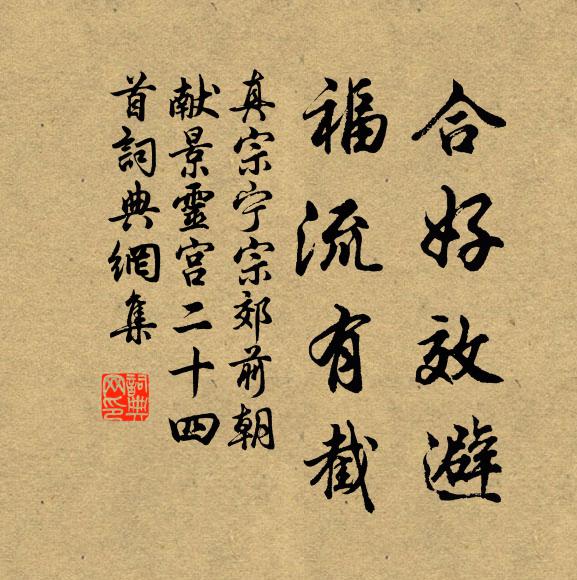 合好效避
福流有截
真宗宁宗郊前朝
献景靈宮二十四
首詞典網集
詞典網印